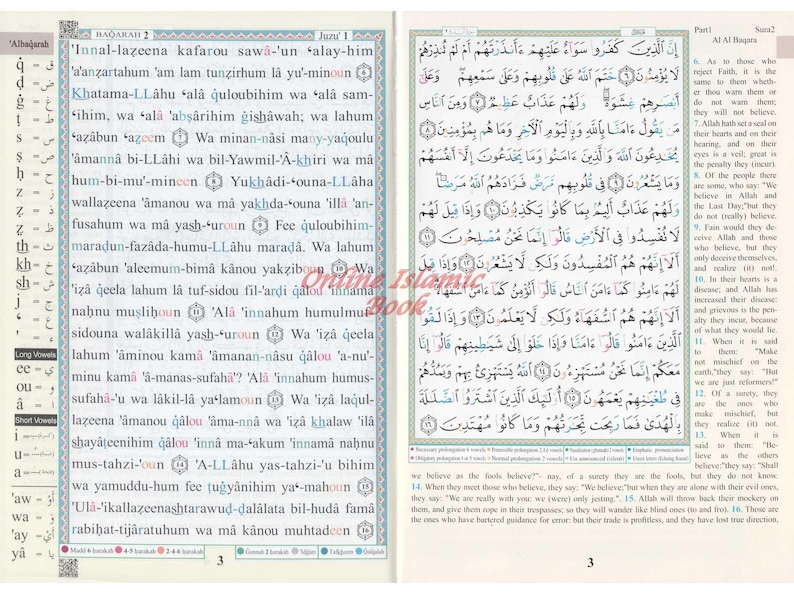 BAQARAH 2
Juzu' 1
'Albaq̇arah
'Innal-laz̧eena kafarou sawâ-'un ʻalay-him
'a'anz̧artahum 'am lam tunz̧irhum lâ yu'-minoun 6
Khatama-LLâhu ʻalâ q̇uloubihim wa ʻalâ sam-
ʻihim, wa ʻalâ 'abṣârihim ġishâwah; wa lahum
ʻaz̧âbun ʻaẓeem 7 Wa minan-nâsi many-yaqoulu
'âmannâ bi-LLâhi wa bil-Yawmil-'Â-khiri wa mâ
hum-bi-mu'-mineen 8 Yukhâdi-ʻouna-LLâha
wallaz̧eena 'âmanou wa mâ yakhda-ʻouna 'illâ 'an-
fusahum wa mâ yash-ʻuroun 9 Fee q̇uloubihim-
maraḍun-fazâda-humu-LLâhu maraḍâ. Wa lahum
ʻaz̧âbun 'aleemum-bimâ kânou yakz̧iboun 10 Wa
'iz̧â q̇eela lahum lâ tuf-sidou fil-'arḍi q̇âlou 'innamâ
naḥnu muṣliḥoun 11 'Alâ 'innahum humulmuf-
sidouna walâkillâ yash-ʻuroun 12 Wa 'iz̧â q̇eela
lahum 'âminou kamâ 'âmanan-nâsu q̇âlou 'a-nu'-
minu kamâ 'â-manas-sufahâ'? 'Alâ 'innahum humus-
sufahâ-'u wa lâkil-lâ yaʻlamoun 13 Wa 'iz̧â laqul-
laz̧eena 'âmanou q̇âlou 'âma-nnâ wa 'iz̧â khalaw 'ilâ
shayâṭeenihim q̇âlou 'innâ ma-ʻakum 'innamâ naḥnu
mus-tahzi-'oun 14 'A-LLâhu yas-tahzi-'u bihim
wa yamuddu-hum fee ṭuġyânihim yaʻ-mahoun 15
'Ulâ-'ikallaz̧eenashtarawuḍ-ḍalâlata bil-hudâ famâ
rabiḥat-tijâratuhum wa mâ kânou muhtadeen 16
q̇ = ق
ḍ = ض
ġ = غ
ṭ = ط
s = س
ṣ = ص
ḥ = ح
z = ز
th = ث
kh = خ
sh = ش
j = ج
Long Vowels
ee = ي
ou = و
â = ا
Short Vowels
i
u
a
'aw = أَوْ
wa = وَ
'ay = أَيْ
yâ = يَا
Madd 6 ḥarakah 4-5 ḥarakah 2-4-6 ḥarakah
Ġunnah 2 ḥarakah Idġâm Tafkheem Q̇alq̇alah
3
Part1 Sura2
Al Al Baqara
إِنَّ ٱلَّذِينَ كَفَرُوا۟ سَوَآءٌ عَلَيْهِمْ ءَأَنذَرْتَهُمْ أَمْ لَمْ تُنذِرْهُمْ
لَا يُؤْمِنُونَ ٦ خَتَمَ ٱللَّهُ عَلَىٰ قُلُوبِهِمْ وَعَلَىٰ سَمْعِهِمْ وَعَلَىٰٓ
أَبْصَٰرِهِمْ غِشَٰوَةٌ وَلَهُمْ عَذَابٌ عَظِيمٌ ٧ وَمِنَ ٱلنَّاسِ
مَن يَقُولُ ءَامَنَّا بِٱللَّهِ وَبِٱلْيَوْمِ ٱلْءَاخِرِ وَمَا هُم بِمُؤْمِنِينَ ٨
يُخَٰدِعُونَ ٱللَّهَ وَٱلَّذِينَ ءَامَنُوا۟ وَمَا يَخْدَعُونَ إِلَّآ أَنفُسَهُمْ
وَمَا يَشْعُرُونَ ٩ فِى قُلُوبِهِم مَّرَضٌ فَزَادَهُمُ ٱللَّهُ مَرَضًا
وَلَهُمْ عَذَابٌ أَلِيمٌۢ بِمَا كَانُوا۟ يَكْذِبُونَ ١٠ وَإِذَا قِيلَ لَهُمْ
لَا تُفْسِدُوا۟ فِى ٱلْأَرْضِ قَالُوٓا۟ إِنَّمَا نَحْنُ مُصْلِحُونَ ١١
أَلَآ إِنَّهُمْ هُمُ ٱلْمُفْسِدُونَ وَلَٰكِن لَّا يَشْعُرُونَ ١٢ وَإِذَا قِيلَ
لَهُمْ ءَامِنُوا۟ كَمَآ ءَامَنَ ٱلنَّاسُ قَالُوٓا۟ أَنُؤْمِنُ كَمَآ ءَامَنَ ٱلسُّفَهَآءُ
أَلَآ إِنَّهُمْ هُمُ ٱلسُّفَهَآءُ وَلَٰكِن لَّا يَعْلَمُونَ ١٣ وَإِذَا لَقُوا۟
ٱلَّذِينَ ءَامَنُوا۟ قَالُوٓا۟ ءَامَنَّا وَإِذَا خَلَوْا۟ إِلَىٰ شَيَٰطِينِهِمْ قَالُوٓا۟ إِنَّا
مَعَكُمْ إِنَّمَا نَحْنُ مُسْتَهْزِءُونَ ١٤ ٱللَّهُ يَسْتَهْزِئُ بِهِمْ وَيَمُدُّهُمْ
فِى طُغْيَٰنِهِمْ يَعْمَهُونَ ١٥ أُو۟لَٰٓئِكَ ٱلَّذِينَ ٱشْتَرَوُا۟ ٱلضَّلَٰلَةَ
بِٱلْهُدَىٰ فَمَا رَبِحَت تِّجَٰرَتُهُمْ وَمَا كَانُوا۟ مُهْتَدِينَ ١٦
Necessary prolongation 6 vowels Permissible prolongation 2,4,6 vowels Nazalization (ghunnah) 2 vowels Emphatic pronunciation
Obligatory prolongation 4 or 5 vowels Normal prolongation 2 vowels Un announced (silent) Unrest letters (Echoing Sound)
6. As to those who
reject Faith, it is the
same to them wheth-
er thou warn them or
do not warn them;
they will not believe.
7. Allah hath set a seal on
their hearts and on their
hearing, and on their
eyes is a veil; great is
the penalty they (incur).
8. Of the people there
are some, who say: "We
believe in Allah and
the Last Day;"but they
do not (really) believe.
9. Fain would they de-
ceive Allah and those
who believe, but they
only deceive themselves,
and realize (it) not!.
10. In their hearts is a
disease; and Allah has
increased their disease:
and grievous is the pen-
alty they incur, because
of what they would lie.
11. When it is said
to them: "Make
not mischief on the
earth,"they say: "But
we are just reformers!"
12. Of a surety, they
are the ones who
make mischief, but
they realize (it) not.
13. When it is
said to them: "Be-
lieve as the others
believe:"they say: "Shall
we believe as the fools believe?"- nay, of a surety they are the fools, but they do not know.
14. When they meet those who believe, they say: "We believe;"but when they are alone with their evil ones,
they say: "We are really with you: we (were) only jesting.". 15. Allah will throw back their mockery on
them, and give them rope in their trespasses; so they will wander like blind ones (to and fro). 16. Those are
the ones who have bartered guidance for error: but their trade is profitless, and they have lost true direction,
3
Online Islamic
Book